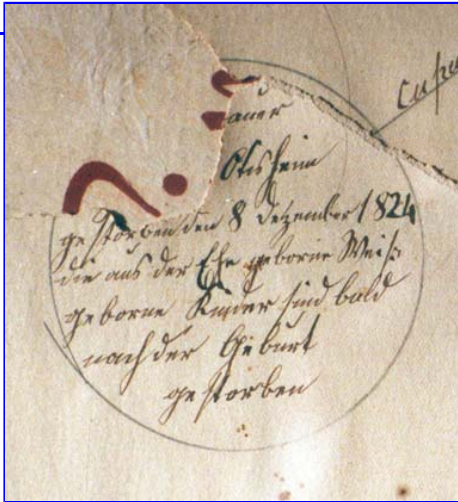 Cupu
auer
Otisheim
gestorben den 8 Dezember 1824
die aus der Ehe geborne Weiß
geborne Kinder sind bald
nach der Geburt
gestorben